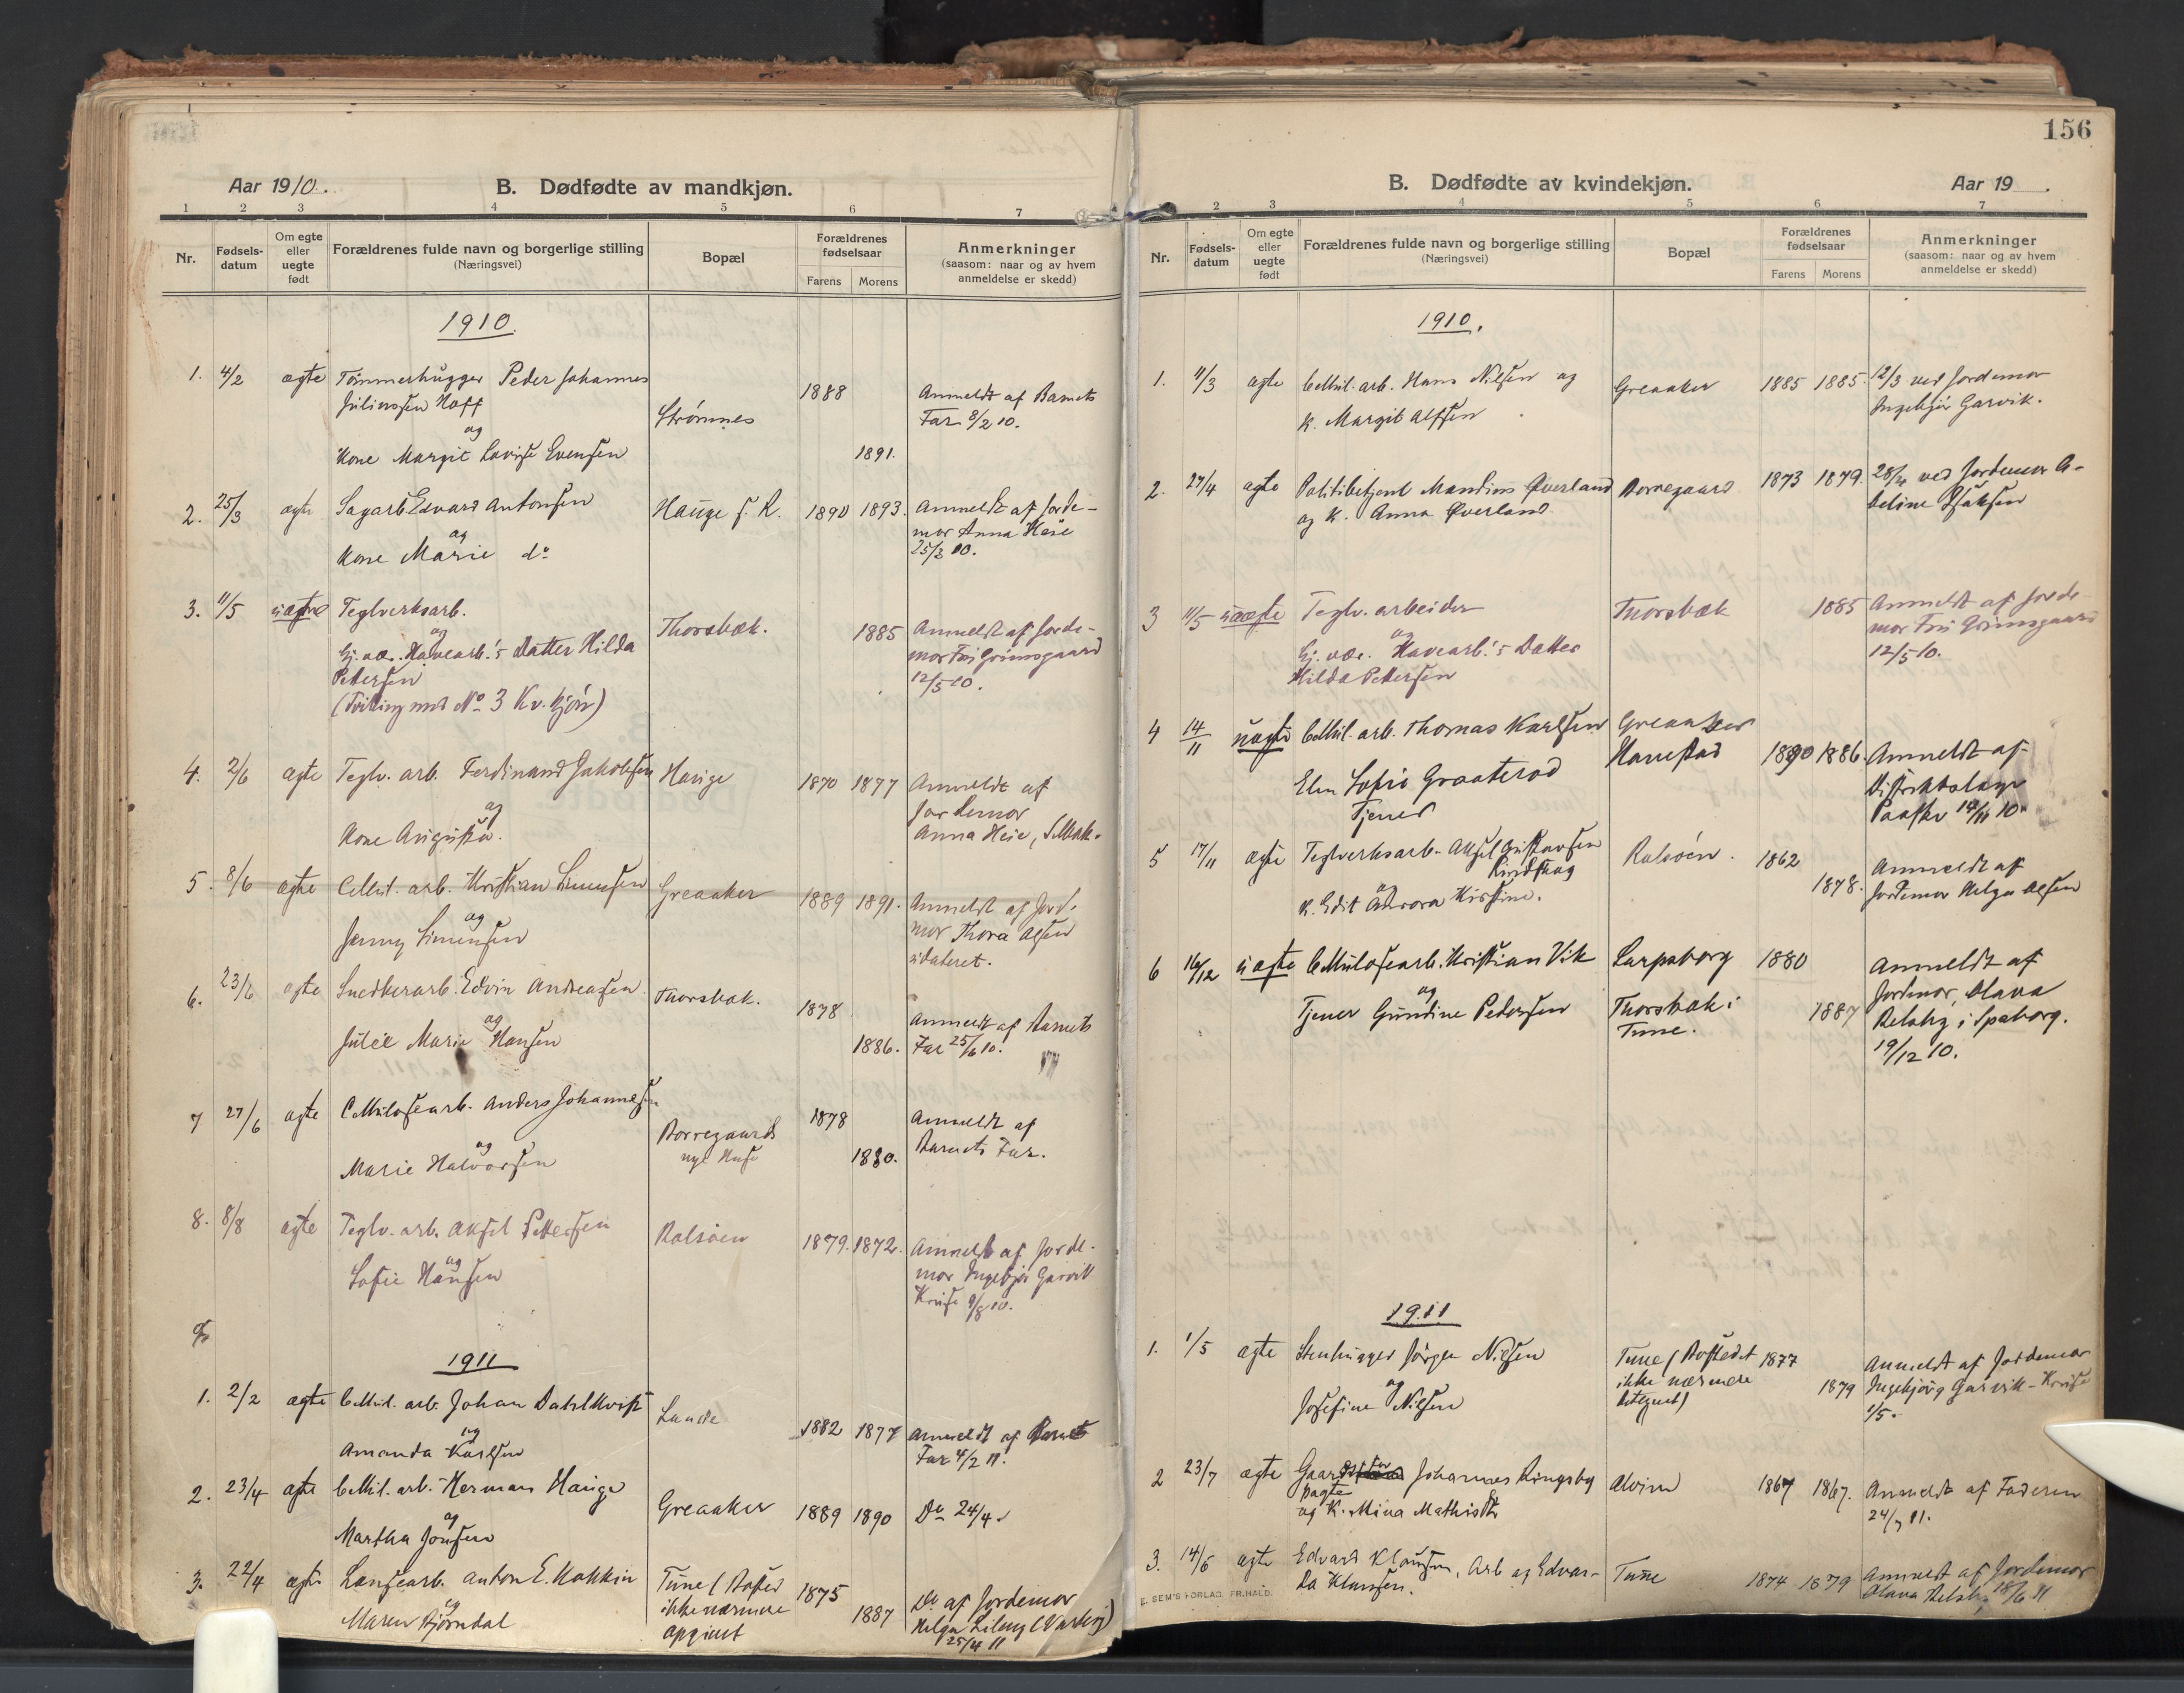 Aar 1910.
B. Dødfødte av mandkjøn.
1 2 3 4 5 6 7
Nr.
Fødsels-
datum
Om egte
eller
uegte
født
Forældrenes fulde navn og borgerlige stilling
(Næringsvei)
Bopæl
Forældrenes
fødselsaar
Farens Morens
Anmerkninger
(saasom: naar og av hvem
anmeldelse er skedd)
1910.
1. 4/2 ægte Tømmerhugger Peder Johannes
Juliussen Hoff
og
Kone Margit Lovise Evensen
Strømnes
1888
1891.
Anmeldt af Barnets
Far 8/2 10.
2. 25/3 ægte Sagarb. Edvard Antonsen
og
Kone Marie do
Hauge s. R. 1890 1893.
Anmeldt af Jorde-
mor Anna Heie
25/3 10.
3. 11/5 uægte Teglverksarb.
og
Gj. væ. Havearb.'s Datter Hilda
Pettersen
(Tvilling med No 3 Kv. kjøn)
Thorsbæk. 1885
Anmeldt af Jorde-
mor Fri Grimsgaard
12/5 10.
4. 2/6 ægte Teglv. arb. Ferdinand Jakobsen
og
Kone Augusta.
Hauge 1870 1877
Anmeldt af
Jordemor
Anna Heie,
5. 8/6 ægte Cellul. arb. Kristian Simensen
og
Jenny Simensen
Greaaker 1889 1891.
Anmeldt af Jord.
mor Thora Olsen
udateret.
6. 23/6 ægte Snedkerarb. Edvin Andreasen
og
Julie Marie Hansen
Thorsbæk. 1878
1886.
Anmeldt af Barnets
Far 25/6 10.
7 27/6 ægte Cellulosearb. Anders Johannessen
og
Marie Halvorsen
Borregaards
nye Huse
1878
1880.
Anmeldt af
Barnets Far.
8. 8/8 ægte Teglv. arb. Aksel Pettersen
og
Sofie Hansen
Rolsøen 1879. 1872.
Anmeldt af Jorde-
mor Ingebjør Garvik
Kruse 9/8 10.
1911
1. 2/2 ægte Cellul. arb. Johan Dahlkvist
og
Amanda Karlsen
Lande 1882 1877
Anmeldt af Barnets
Far 4/2 11.
2. 23/4 ægte Cellul. arb. Herman Hauge
og
Martha Jonsen
Greaaker 1889 1890 Do 24/4.
3. 22/4 ægte Lensearb. Anton E. Kokkin
og
Maren Bjørndal
Tune (Bosted
ikke nærmere
opgivet
1875
1887
Do af Jordemor
Helga Lileng (Varteig)
25/4 11
156
B. Dødfødte av kvindekjøn.
Aar 19 .
2 3 4 5 6 7
Nr.
Fødsels-
datum
Om egte
eller
uegte
født
Forældrenes fulde navn og borgerlige stilling
(Næringsvei)
Bopæl
Forældrenes
fødselsaar
Farens Morens
Anmerkninger
(saasom: naar og av hvem
anmeldelse er skedd)
1910.
1. 11/3 ægte Cellul. arb. Hans Nilsen og
K. Margit Alfsen
Greaaker 1885 1885.
12/3 ved Jordemor
Ingebjør Garvik.
2. 27/4 ægte Politibetjent Mandius Øverland
og K. Anna Øverland
Borregaard 1873 1879.
28/4 ved Jordemor A-
beline Isaksen
3 11/5 uægte Teglv. arbeider
og
Gj. væ. Havearb.'s Datter
Hilda Pettersen
Thorsbæk 1885
Anmeldt af Jorde-
mor Fri Grimsgaard
12/5 10.
4 14/11 uægte Cellul. arb. Thomas Karlsen
Elen Sofie Graaterød
Tjener
Greaaker
Hanestad
1890 1886.
Anmeldt af
Distriktslæge
Paaske 14/11 10.
5 17/11 ægte Teglverksarb. Aksel Gustavsen
Lindskog
og
K. Edit Aurora Kristine.
Rolsøen. 1862
1878.
Anmeldt af
Jordemor Helga Olsen
6 16/12 uægte Cellulosearb. Kristian Vik
og
Tjener Gundine Pedersen
Sarpsborg
Thorsbæk i
Tune.
1880
1887
Anmeldt af
Jordmor, Olava
Relsby i Spsborg.
19/12 10.
1911
1. 1/5 ægte Stenhugger Jørgen Nilsen
og
Josefine Nilsen
Tune (Bostedet
ikke nærmere
betegnet)
1877
1879
Anmeldt af Jordemor
Ingebjørg Garvik-Kruse
1/5.
2 23/7 ægte Gaardfor
pagter
Johannes Ringsby
og K. Mina Mathisdtr
Alvim 1867 1867.
Anmeldt af Faderen
24/7 11.
3. 14/6 ægte Edvard Klausen, Arb og Edvar-
da Klausen.
Tune 1874 1879
Anmeldt af Jordemor
Olava Relsby 18/6 11
E. SEM'S FORLAG. FR.HALD.